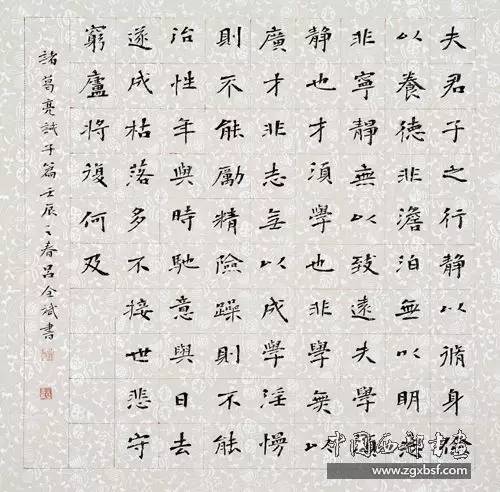 夫君子之行靜以脩身
以養德非澹泊無以明
非寧靜無以致遠夫學
靜也才須學也非學無以
廣才非志无以成學淫慢
則不能勵精險躁則不能
治性年與時馳意與日去
遂成枯落多不接世悲守
窮廬將復何及
諸葛亮誡子篇壬辰之春呂全斌書
中国西部书画
www.zgxbsf.com